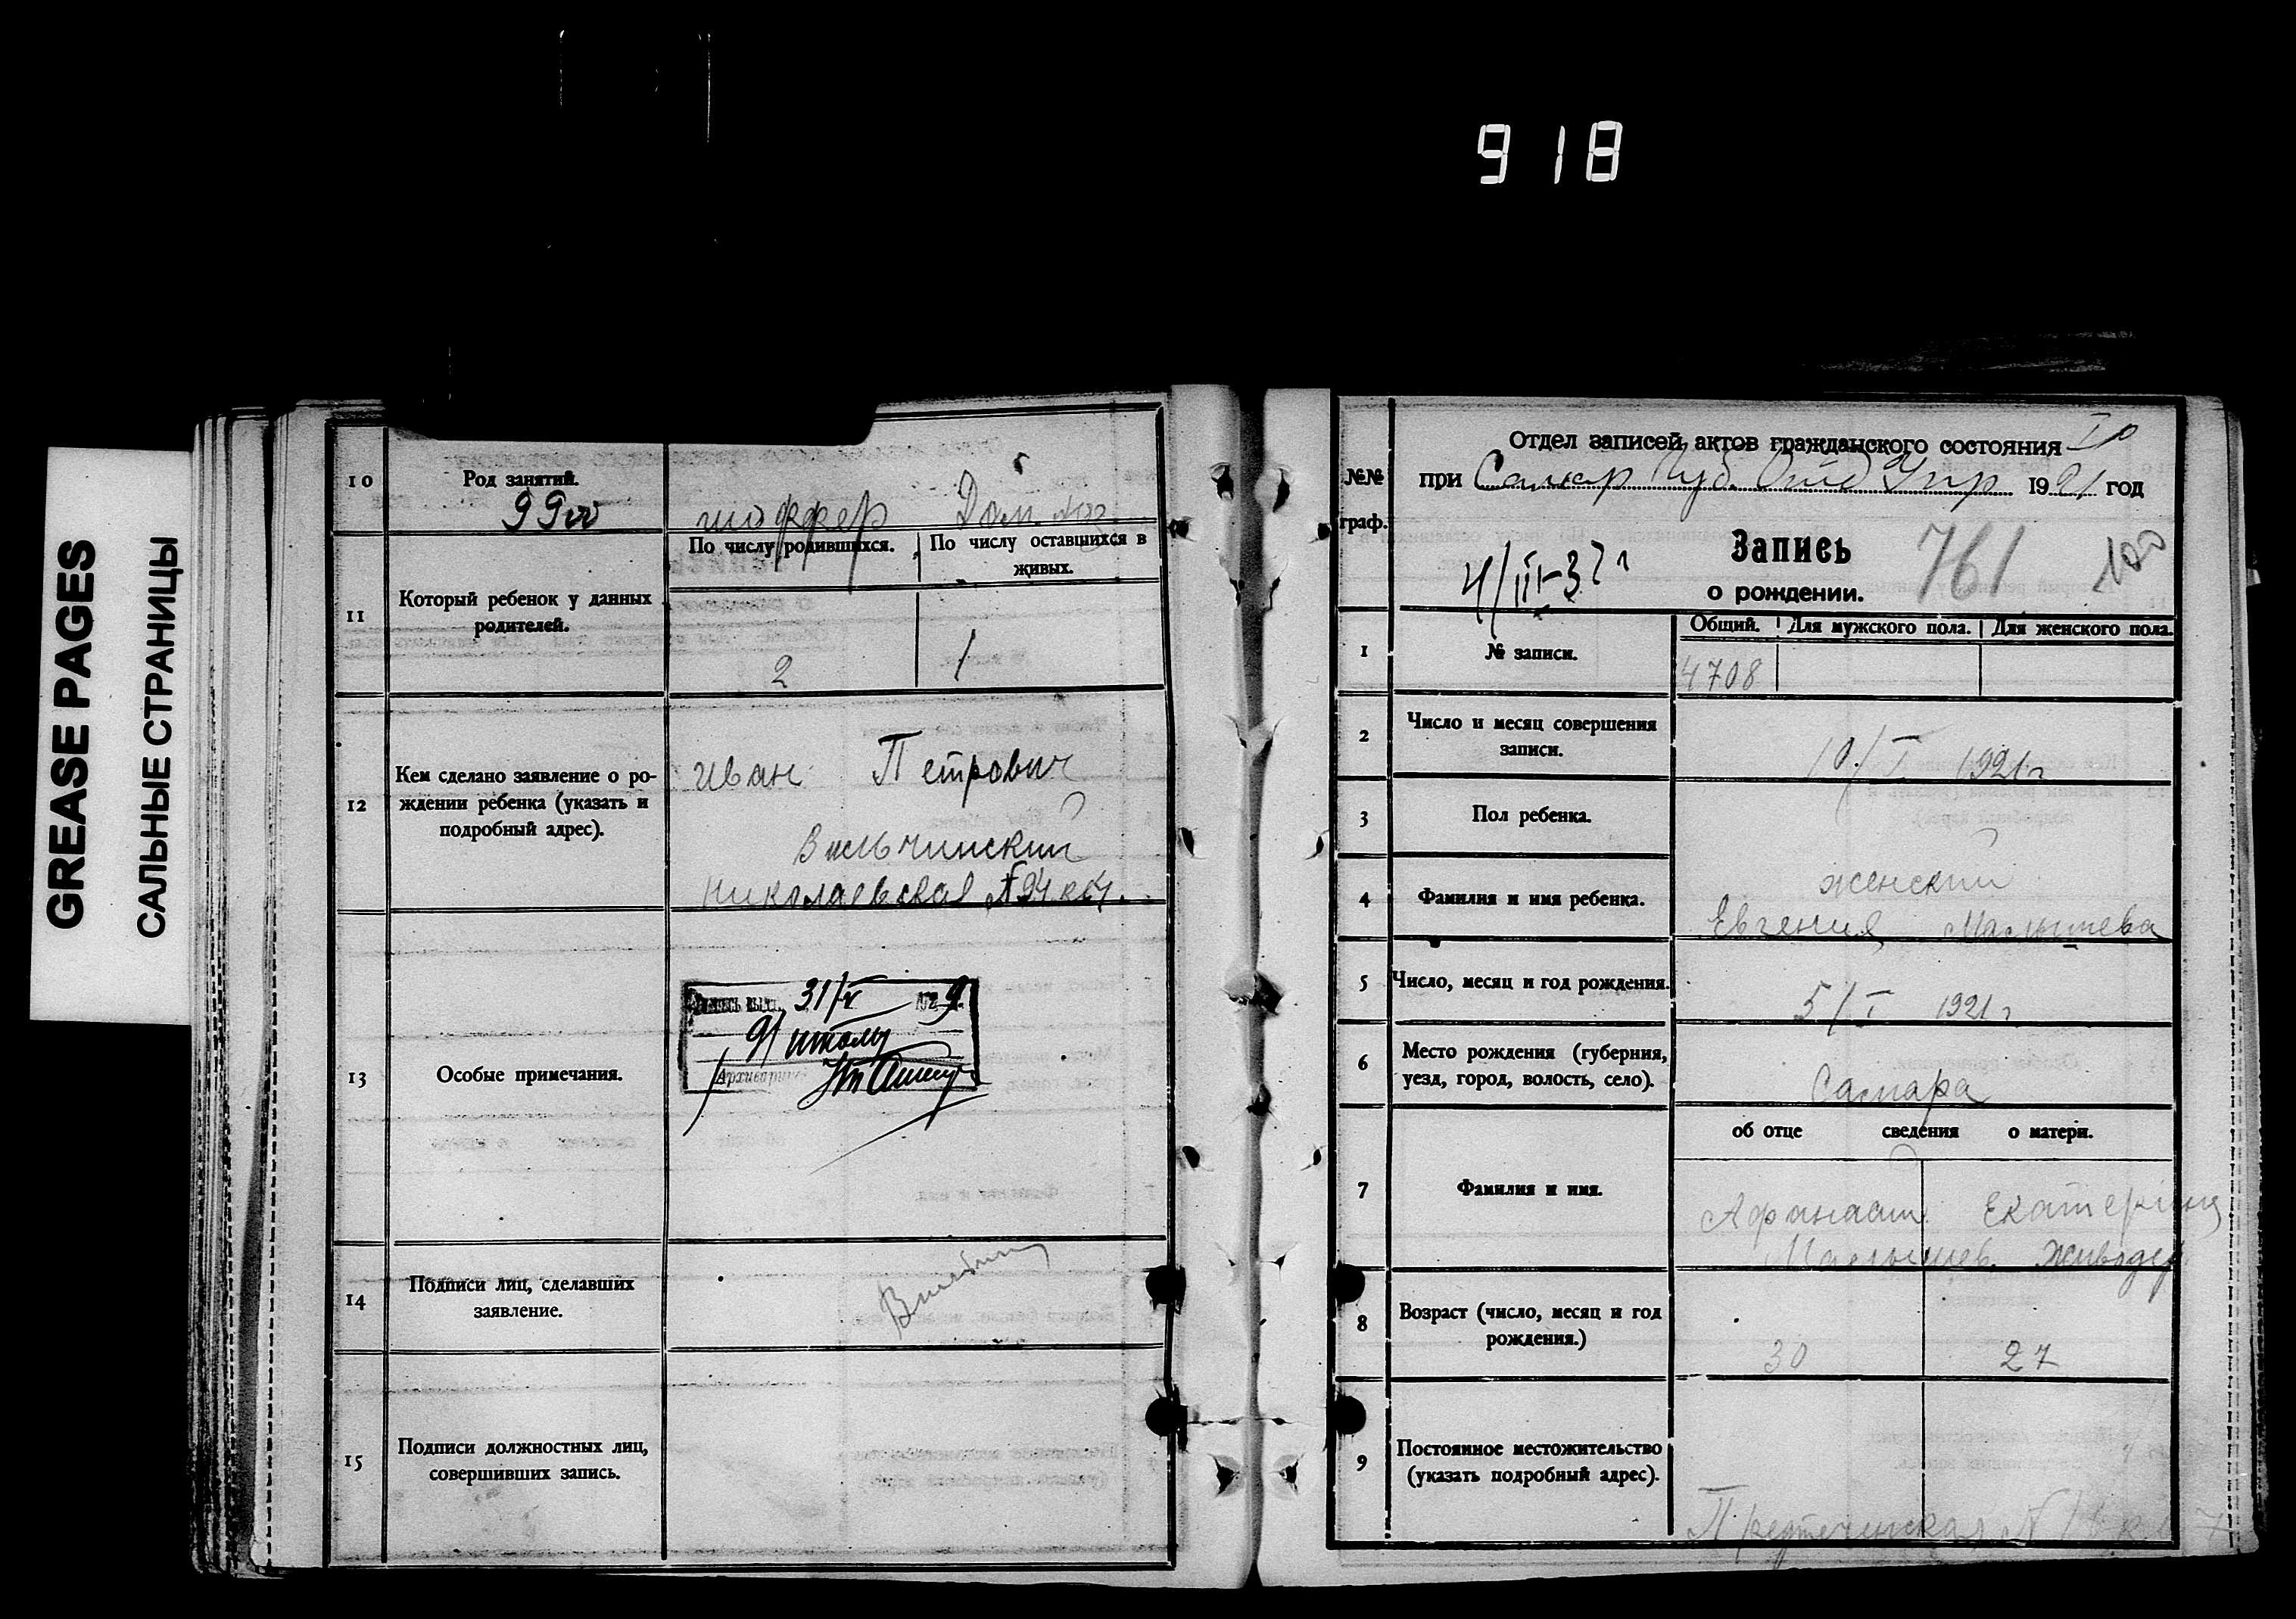 918
GREASE PAGES
САЛЬНЫЕ СТРАНИЦЫ
10
Род занятий.
шоффер Дом.
11
Который ребенок у данных
родителей.
По числу родившихся.
По числу оставшихся в
живых.
2
1
12
Кем сделано заявление о ро-
ждении ребенка (указать и
подробный адрес).
Иван Петрович
Вильчинский
Николаевская № 94 кв 4.
13
Особые примечания.
31/V 1929.
91 школу
Архивариус
14
Подписи лиц, сделавших
заявление.
15
Подписи должностных лиц,
совершивших запись.
№№
граф.
Отдел записей актов гражданского состояния
при Самар Губ. Отд Упр 1921 год
Запись
о рождении.
761
100
4/III-37 г
1
№ записи.
Общий.
Для мужского пола.
Для женского пола.
4708
2
Число и месяц совершения
записи.
10/I 1921 г
3
Пол ребенка.
женский
4
Фамилия и имя ребенка.
Евгения Малышева
5
Число, месяц и год рождения.
5/I 1921 г
6
Место рождения (губерния,
уезд, город, волость, село).
Самара
об отце сведения о матери.
7
Фамилия и имя.
Афанасий
Малышев
Екатерина
8
Возраст (число, месяц и год
рождения.)
30
27
9
Постоянное местожительство
(указать подробный адрес).
Предтеченская №